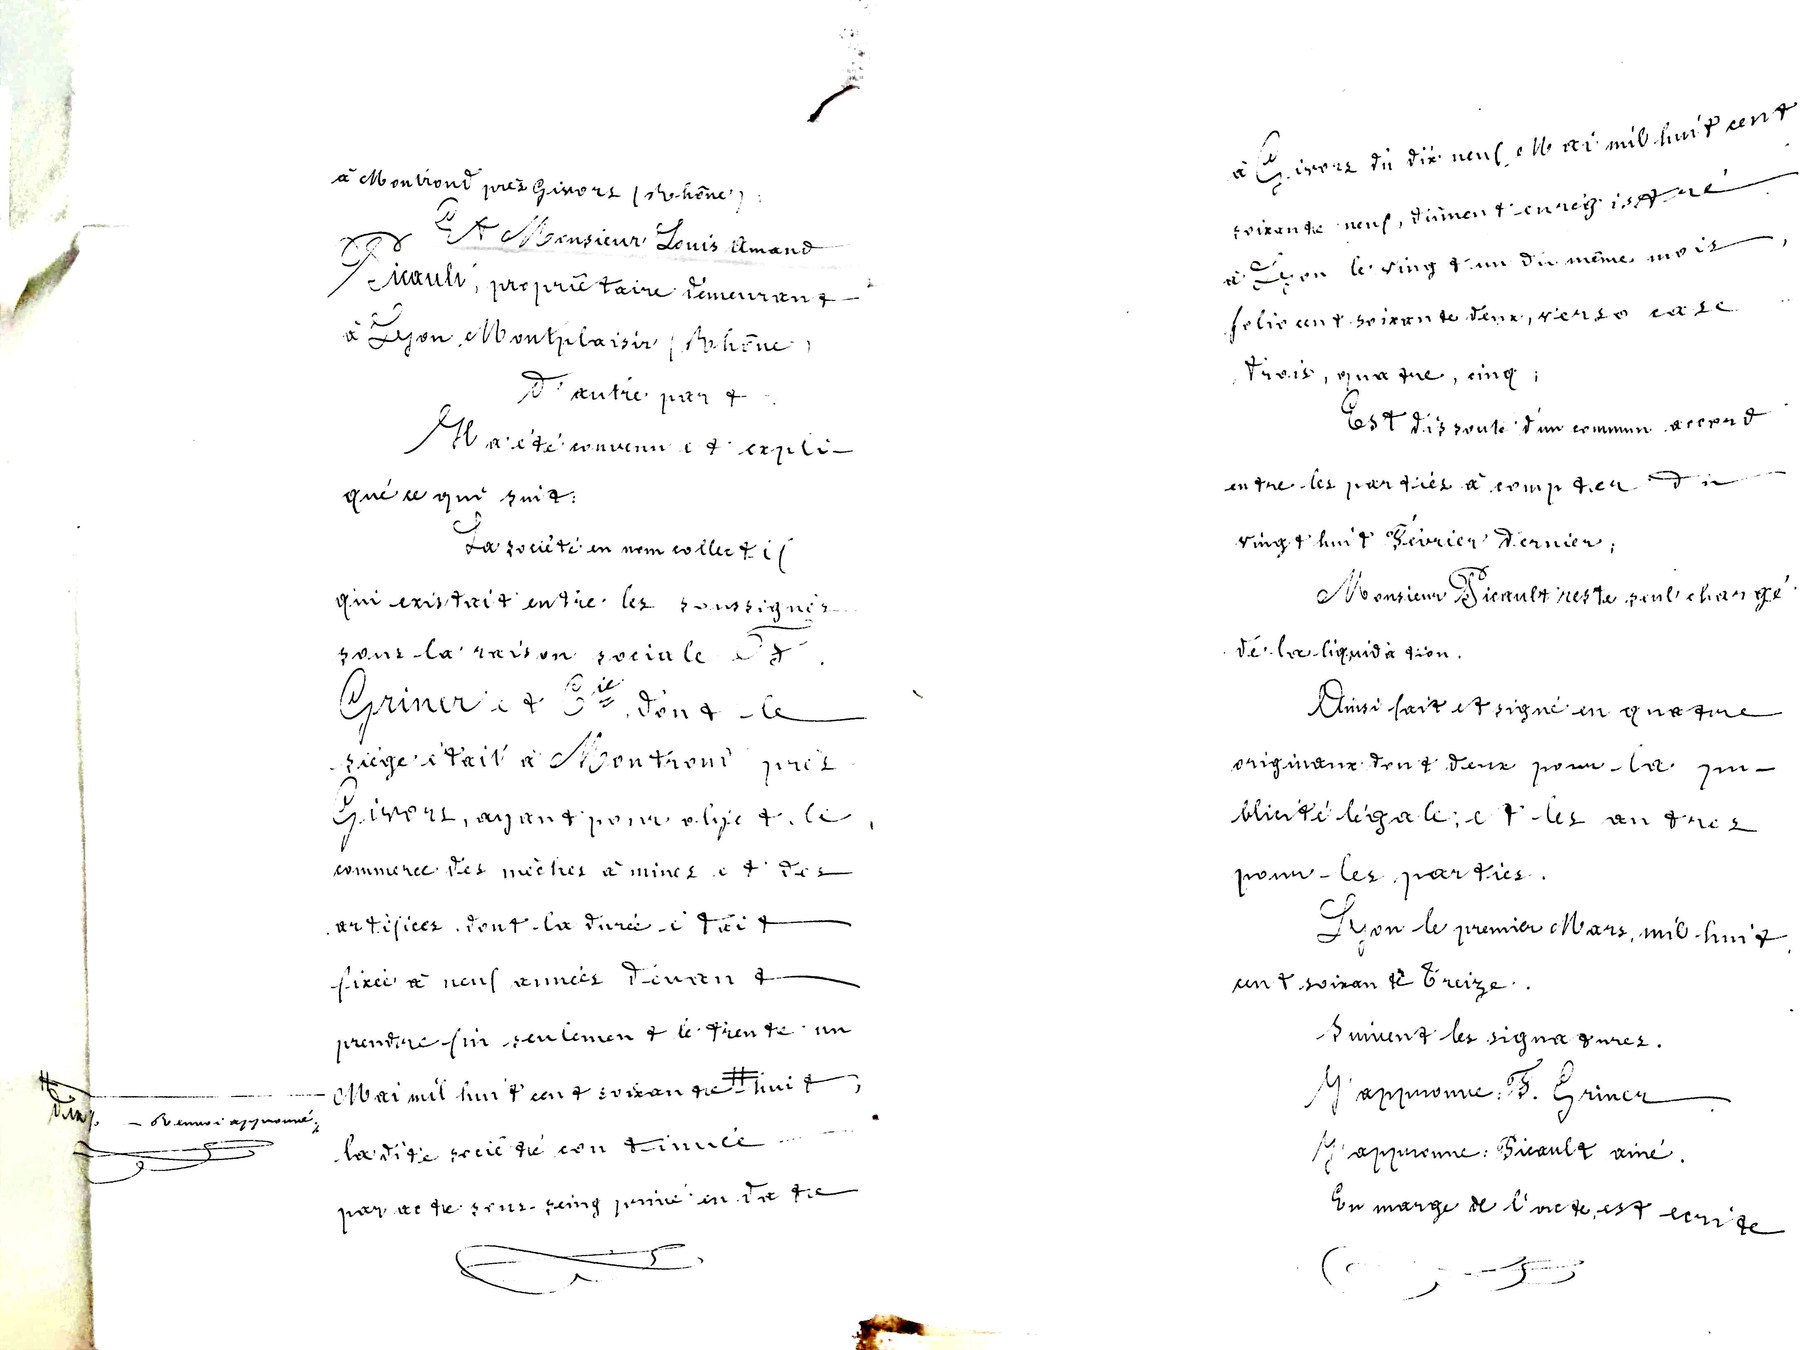 à Montrond près Givors (Rhône);
Et Monsieur Louis Amand
Picault, propriétaire demeurant
à Lyon Montplaisir (Rhône)
D'autre part
Il a été convenu et expli-
qué ce qui suit:
La société en nom collectif
qui existait entre les soussignés
sous la raison sociale F.
Griner et Cie, dont le
siège était à Montrond près
Givors, ayant pour objet le
commerce des mèches à mines et des
artifices dont la durée était
fixée à neuf années devant
prendre fin seulement le trente un
Mai mil huit cent soixante # huit,
# dix/. - Renvoi approuvé;
la dite société continuée
par acte sous-seing privé en date
à Givors du dix neuf Mai mil huit cent
soixante neuf, dûment enregistré
à Lyon le vingt un du même mois,
folio cent soixante deux, verso case
trois, quatre, cinq;
Est dissoute d'un commun accord
entre les parties à compter du
vingt huit Février dernier;
Monsieur Picault reste seul chargé
de la liquidation.
Ainsi fait et signé en quatre
originaux dont deux pour la pu-
blicité légale; et les autres
pour les parties.
Lyon le premier Mars, mil huit
cent soixante treize.
Suivent les signatures.
J'approuve: F. Griner
J'approuve: Picault ainé.
En marge de l'acte, est ecrite